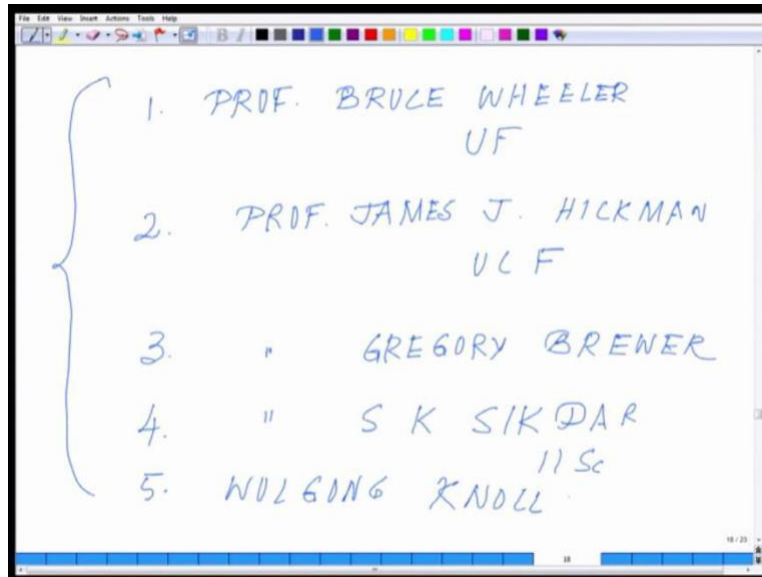 File Edit View Insert Actions Tools Help
B I
1. PROF. BRUCE WHEELER
UF
2. PROF. JAMES J. HICKMAN
UCF
3. " GREGORY BREWER
4. " S K SIKDAR
IISc
5. WOLGONG KNOLL
18 / 23
18